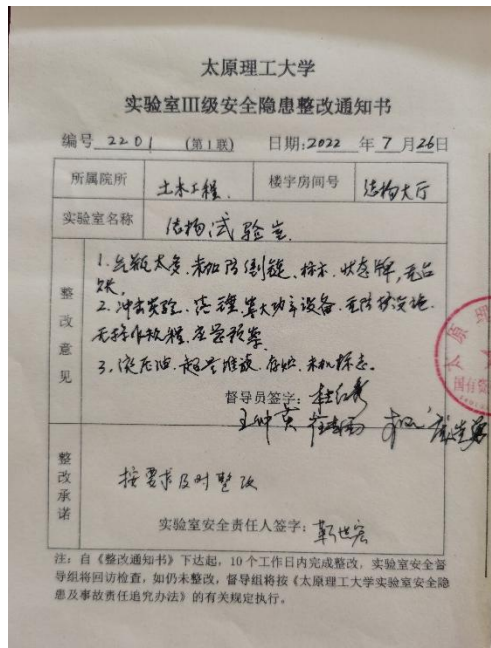 太原理工大学
实验室III级安全隐患整改通知书
编号 2201 (第1联) 日期:2022 年 7 月 26 日
所属院所 土木工程. 楼宇房间号 结构大厅
实验室名称 结构试验室.
整改意见
1.气瓶太多.未加防倒链.标示.状态牌,无台账.
2.冲击实验、等大功率设备.无防护设施.
无操作规程.应急预案.
3,液压油.超量堆放.存贮.未见标志。
督导员签字:
王仲英
整改承诺
按要求及时整改
实验室安全责任人签字:
注:自《整改通知书》下达起,10个工作日内完成整改,实验室安全督
导组将回访检查,如仍未整改,督导组将按《太原理工大学实验室安全隐
患及事故责任追究办法》的有关规定执行。